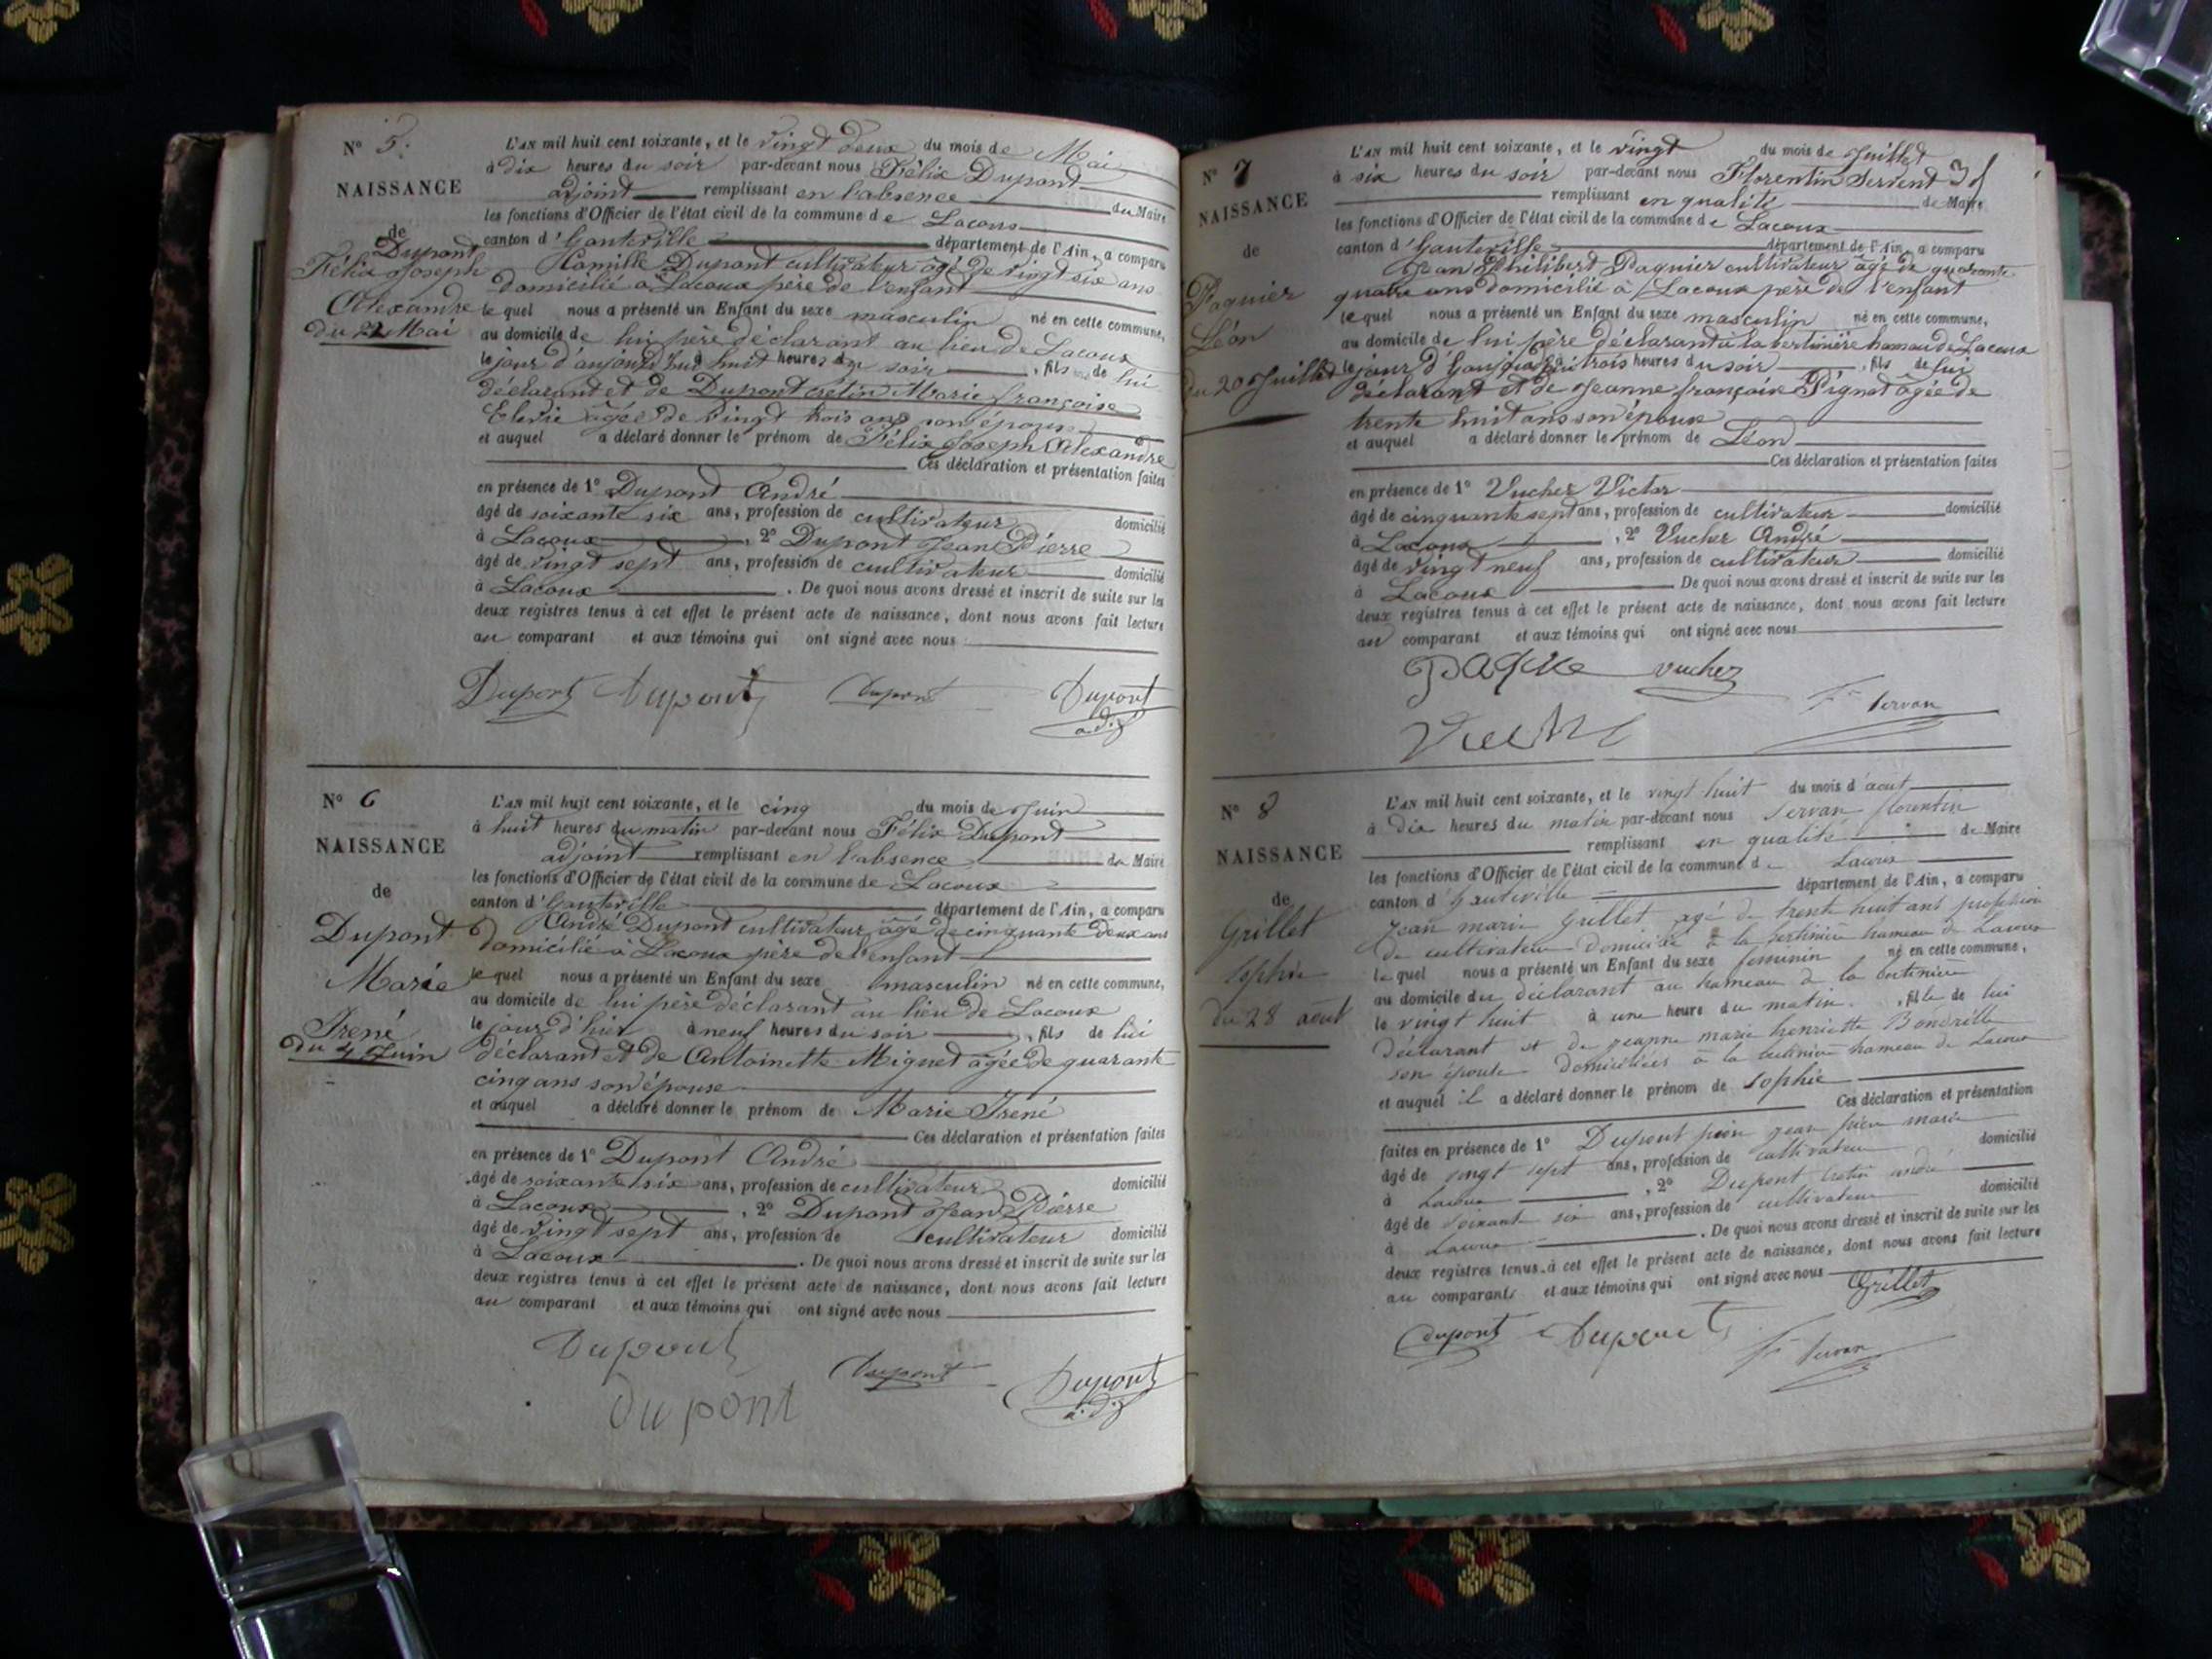 N° 5.
NAISSANCE
de
Dupont
Félix Joseph
Alexandre
du 22 Mai
L'AN mil huit cent soixante, et le vingt deux du mois de Mai
à dix heures du soir par-devant nous Félix Dupont
adjoint remplissant en l'absence du Maire
les fonctions d'Officier de l'état civil de la commune de Lacoux
canton d'hauteville département de l'Ain, a comparu
Camille Dupont cultivateur âgé de vingt six ans
domicilié à Lacoux père de l'enfant
lequel nous a présenté un Enfant du sexe masculin né en cette commune,
au domicile de lui père déclarant au lieu de Lacoux
le jour d'aujourd'hui à huit heures du soir , fils de lui
déclarant et de Dupont crétin Marie françoise
âgée de vingt trois ans son épouse
et auquel a déclaré donner le prénom de Félix Joseph Alexandre
Ces déclaration et présentation faites
en présence de 1° Dupont André
âgé de soixante six ans, profession de cultivateur domicilié
à Lacoux , 2° Dupont Jean Pierre
âgé de vingt sept ans, profession de cultivateur domicilié
à Lacoux . De quoi nous avons dressé et inscrit de suite sur les
deux registres tenus à cet effet le présent acte de naissance, dont nous avons fait lecture
au comparant et aux témoins qui ont signé avec nous
Dupont Dupont Dupont Dupont
adj
N° 6
NAISSANCE
de
Dupont
Marie
Irené
du 4 Juin
L'AN mil huit cent soixante, et le cinq du mois de Juin
à huit heures du matin par-devant nous Félix Dupont
adjoint remplissant en l'absence du Maire
les fonctions d'Officier de l'état civil de la commune de Lacoux
canton d'hauteville département de l'Ain, a comparu
André Dupont cultivateur âgé de cinquante deux ans
domicilié à Lacoux père de l'enfant
lequel nous a présenté un Enfant du sexe masculin né en cette commune,
au domicile de lui père déclarant au lieu de Lacoux
le jour d'hier à neuf heures du soir , fils de lui
déclarant et de Antoinette Miguet âgée de quarante
cinq ans son épouse
et auquel a déclaré donner le prénom de Marie Irené
Ces déclaration et présentation faites
en présence de 1° Dupont André
âgé de soixante six ans, profession de cultivateur domicilié
à Lacoux , 2° Dupont Jean Pierre
âgé de vingt sept ans, profession de cultivateur domicilié
à Lacoux . De quoi nous avons dressé et inscrit de suite sur les
deux registres tenus à cet effet le présent acte de naissance, dont nous avons fait lecture
au comparant et aux témoins qui ont signé avec nous
Dupont Dupont Dupont
dupont adj
N° 7
NAISSANCE
de
Paquier
Léon
du 20 Juillet
L'AN mil huit cent soixante, et le vingt du mois de Juillet
à six heures du soir par-devant nous Florentin Servent
remplissant en qualité de Maire
les fonctions d'Officier de l'état civil de la commune de Lacoux
canton d'hauteville département de l'Ain, a comparu
Jean Philibert Paquier cultivateur âgé de quarante
quatre ans domicilié à Lacoux père de l'enfant
lequel nous a présenté un Enfant du sexe masculin né en cette commune,
au domicile de lui père déclarant à la bertinière hameau de Lacoux
le jour d'aujourd'hui à trois heures du soir , fils de lui
déclarant et de Jeanne françoise Pignot âgée de
trente huit ans son épouse
et auquel a déclaré donner le prénom de Léon
Ces déclaration et présentation faites
en présence de 1° Vucher Victor
âgé de cinquante sept ans, profession de cultivateur domicilié
à Lacoux , 2° Vucher André
âgé de vingt neuf ans, profession de cultivateur domicilié
à Lacoux . De quoi nous avons dressé et inscrit de suite sur les
deux registres tenus à cet effet le présent acte de naissance, dont nous avons fait lecture
au comparant et aux témoins qui ont signé avec nous
vucher
Fn servan
N° 8
NAISSANCE
de
Grillet
sophie
du 28 août
L'AN mil huit cent soixante, et le vingt huit du mois d'aout
à dix heures du matin par-devant nous servan florentin
remplissant en qualité de Maire
les fonctions d'Officier de l'état civil de la commune de Lacoux
canton d'hauteville département de l'Ain, a comparu
jean marie grillet agé de trente huit ans profession
de cultivateur domicilié à la bertinière hameau de Lacoux
lequel nous a présenté un Enfant du sexe feminin né en cette commune,
au domicile du déclarant au hameau de la bertinière
le vingt huit à une heure du matin , fille de lui
déclarant et de jeanne marie henriette
son épouse domiciliées à la bertinière hameau de Lacoux
et auquel il a déclaré donner le prénom de sophie
Ces déclaration et présentation
faites en présence de 1° Dupont jean pierre marie
âgé de vingt sept ans, profession de cultivateur domicilié
à Lacoux , 2° Dupont cretin andré
âgé de soixante six ans, profession de cultivateur domicilié
à Lacoux . De quoi nous avons dressé et inscrit de suite sur les
deux registres tenus à cet effet le présent acte de naissance, dont nous avons fait lecture
au comparant et aux témoins qui ont signé avec nous
Grillet
dupont Dupont Fn servan